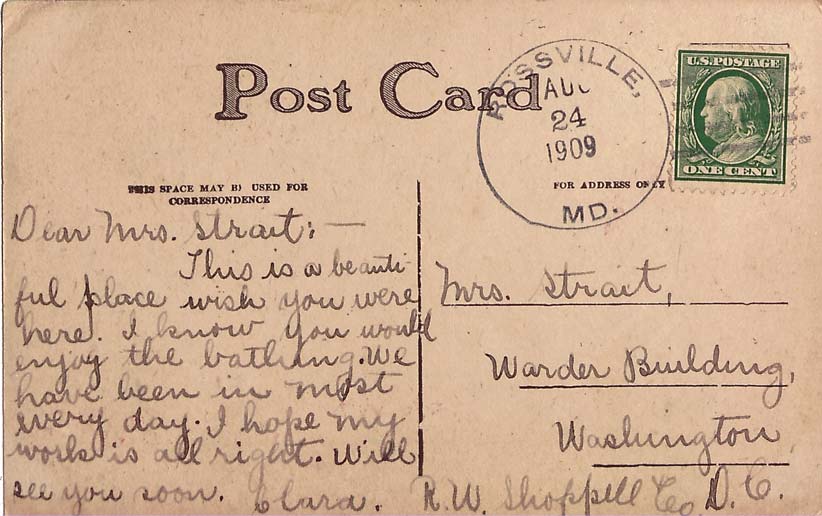 Post Card
ROSSVILLE,
AUG
24
1909
MD.
U.S. POSTAGE
ONE CENT
THIS SPACE MAY BE USED FOR
CORRESPONDENCE
FOR ADDRESS ONLY
Dear Mrs. Strait: —
This is a beauti-
ful place wish you were
here. I know you would
enjoy the bathing. We
have been in most
every day. I hope my
work is all right. Will
see you soon. Clara.
Mrs. Strait,
Warder Building,
Washington
R.W. Shoppell Co D.C.